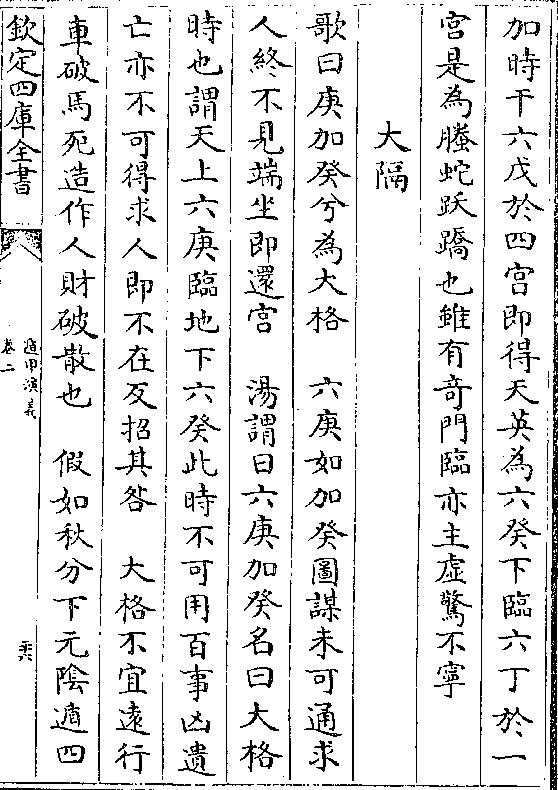 加時干六戊於四宮即得天英為六癸下臨六丁於一
宮是為螣蛇跃蹻也雖有奇門臨亦主虛驚不寧
大隔
歌曰庚加癸兮為大格　六庚如加癸圖謀未可通求
人終不見端坐即還宮　湯謂曰六庚加癸名曰大格
時也謂天上六庚臨地下六癸此時不可用百事凶遺
亡亦不可得求人即不在反招其咎　大格不宜遠行
車破馬死造作人財破散也　假如秋分下元陰遁四
欽定四庫全書
遁甲演義
卷二